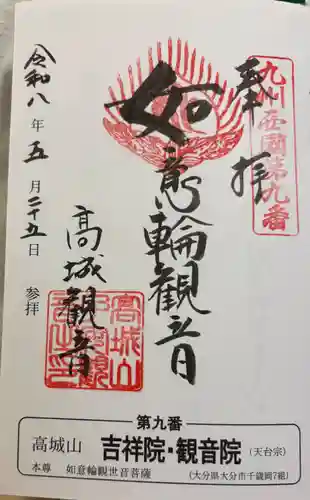 奉拝
九州西國第九番
如意輪観音
高城観音
令和八年五月二十五日 参拝
第九番
高城山 吉祥院・観音院 (天台宗)
本尊 如意輪観世音菩薩 (大分県大分市千歳岡7組)